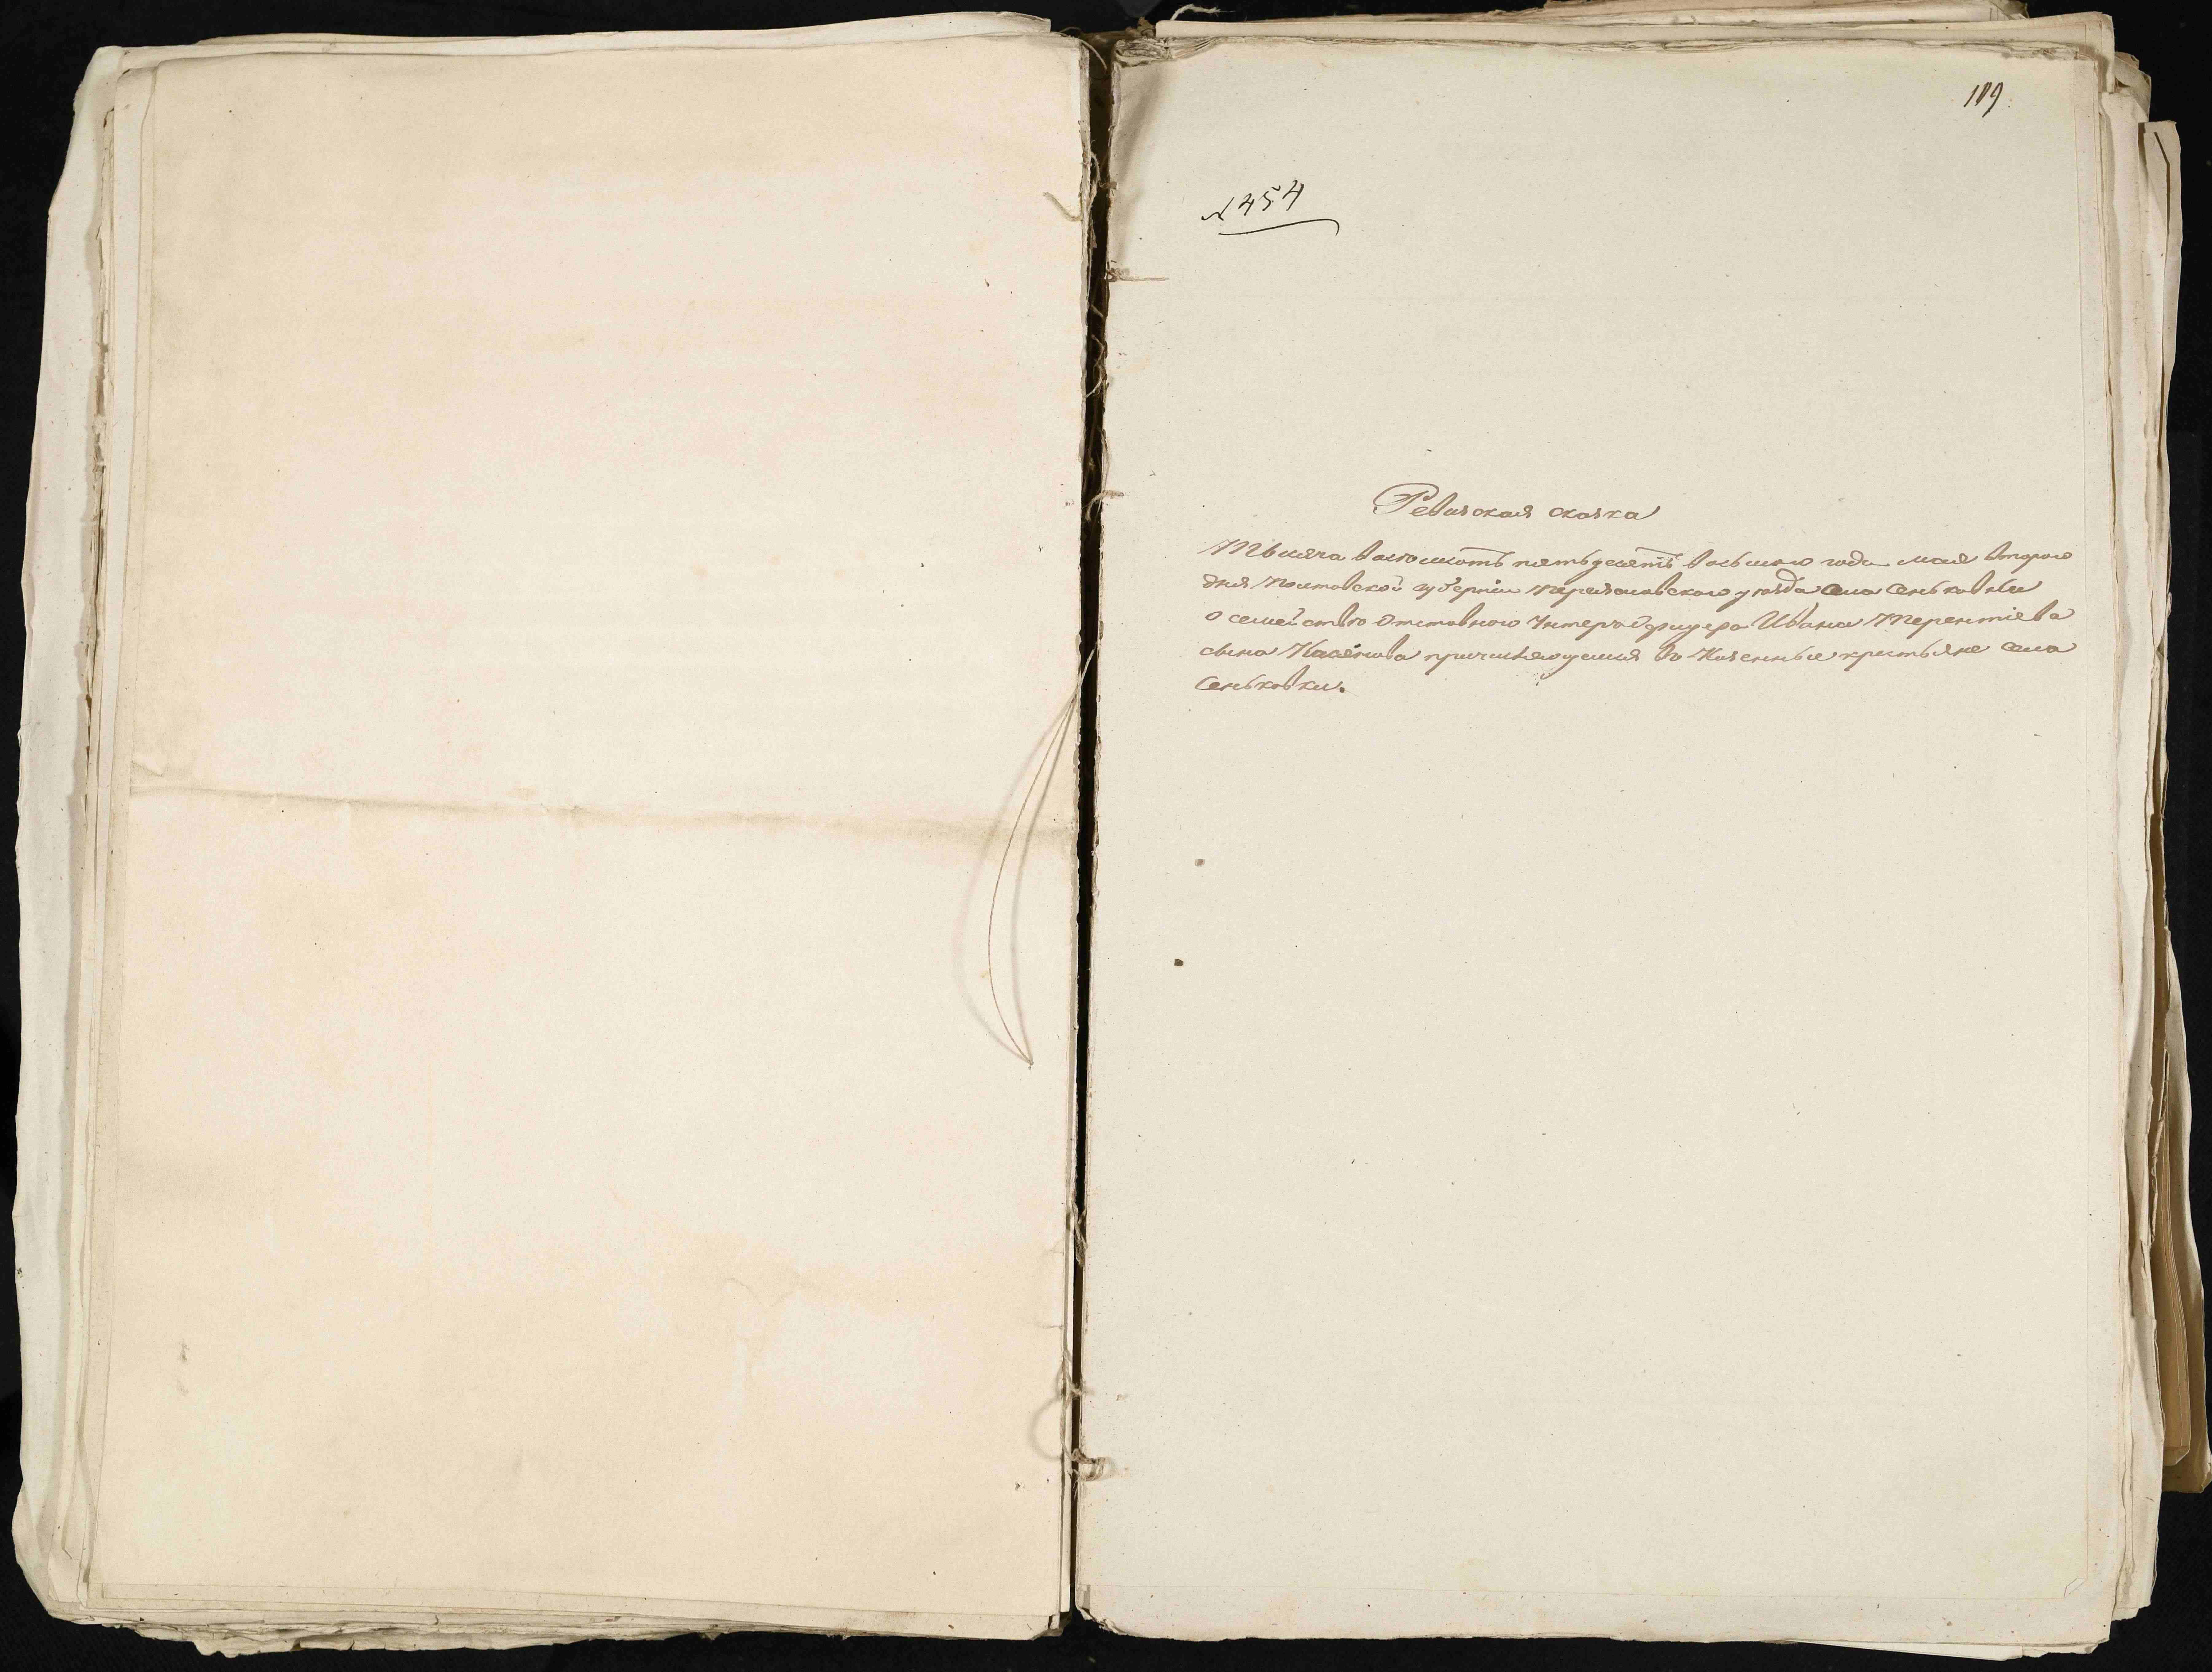 189
№ 454
Ревизская сказка
Тысяча восемьсотъ пятьдесятъ восьмого года мая второго
дня Полтавской губерніи Переяславского уѣзда села Сеньковки
о семействѣ отставного Унтеръ Офицера Ивана Терентіева
сына причисляющемся въ Казенные крестьяне села
Сеньковки.